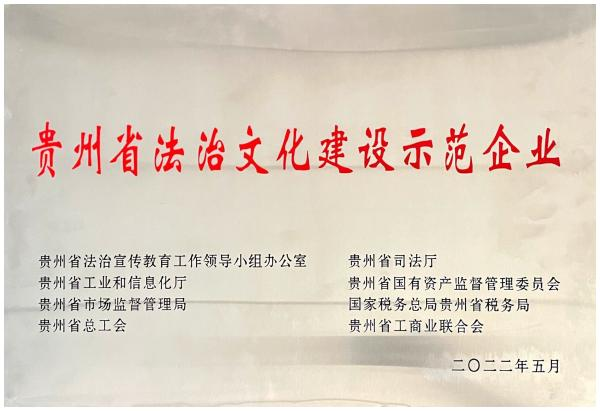 贵州省法治文化建设示范企业
贵州省法治宣传教育工作领导小组办公室
贵州省司法厅
贵州省工业和信息化厅
贵州省国有资产监督管理委员会
贵州省市场监督管理局
国家税务总局贵州省税务局
贵州省总工会
贵州省工商业联合会
二〇二二年五月